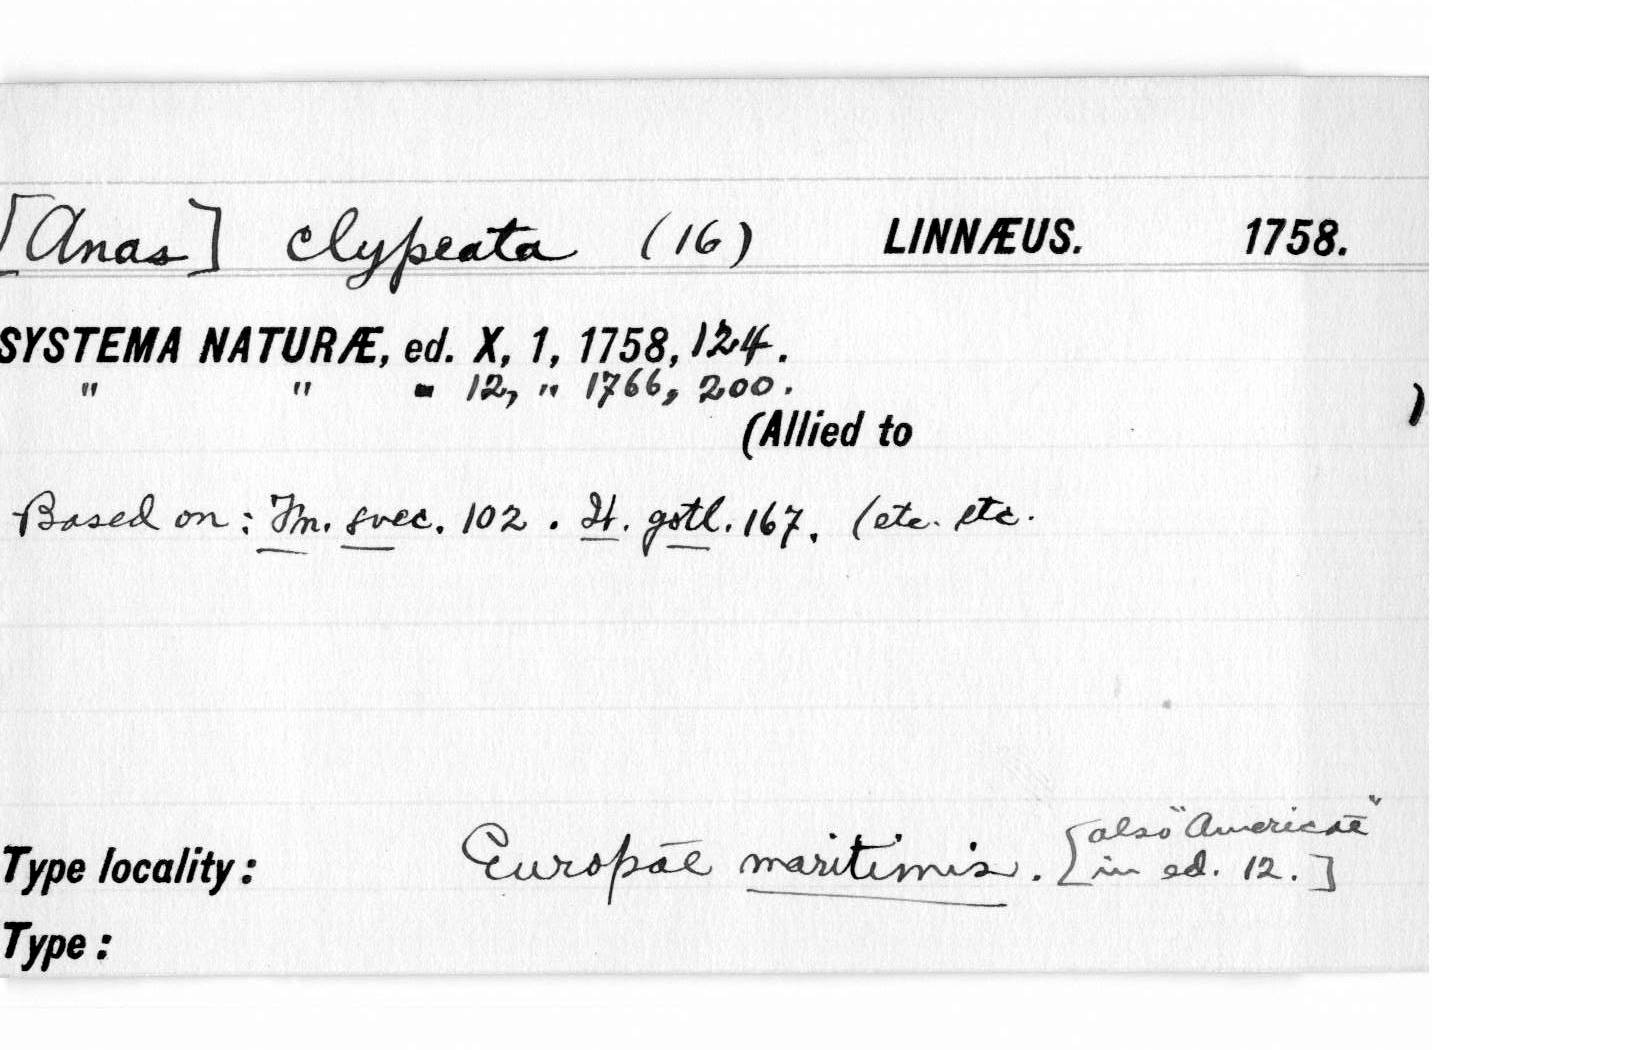 [Anas] clypeata (16) LINNÆUS. 1758.
SYSTEMA NATURÆ, ed. X, 1, 1758, 124.
" " " 12, " 1766, 200.
(Allied to )
Based on: Fn. svec. 102. It. gotl. 167. (etc. etc.
[also "Americae"
Type locality: Europae maritimis. in ed. 12.]
Type: